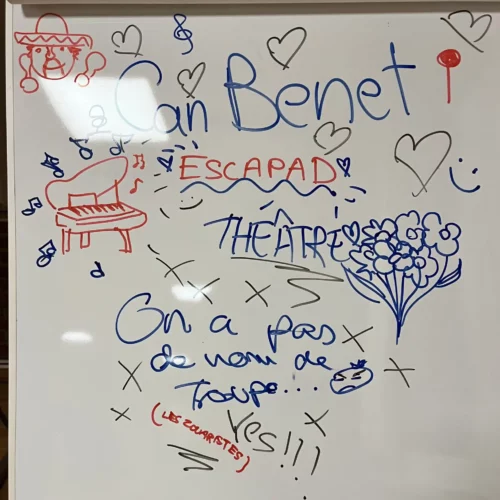 Can Benet
ESCAPAD
THÉÂTRE
On a pas
de nom de
Troupe...
(LES ZOUARISTES)
Yes!!!